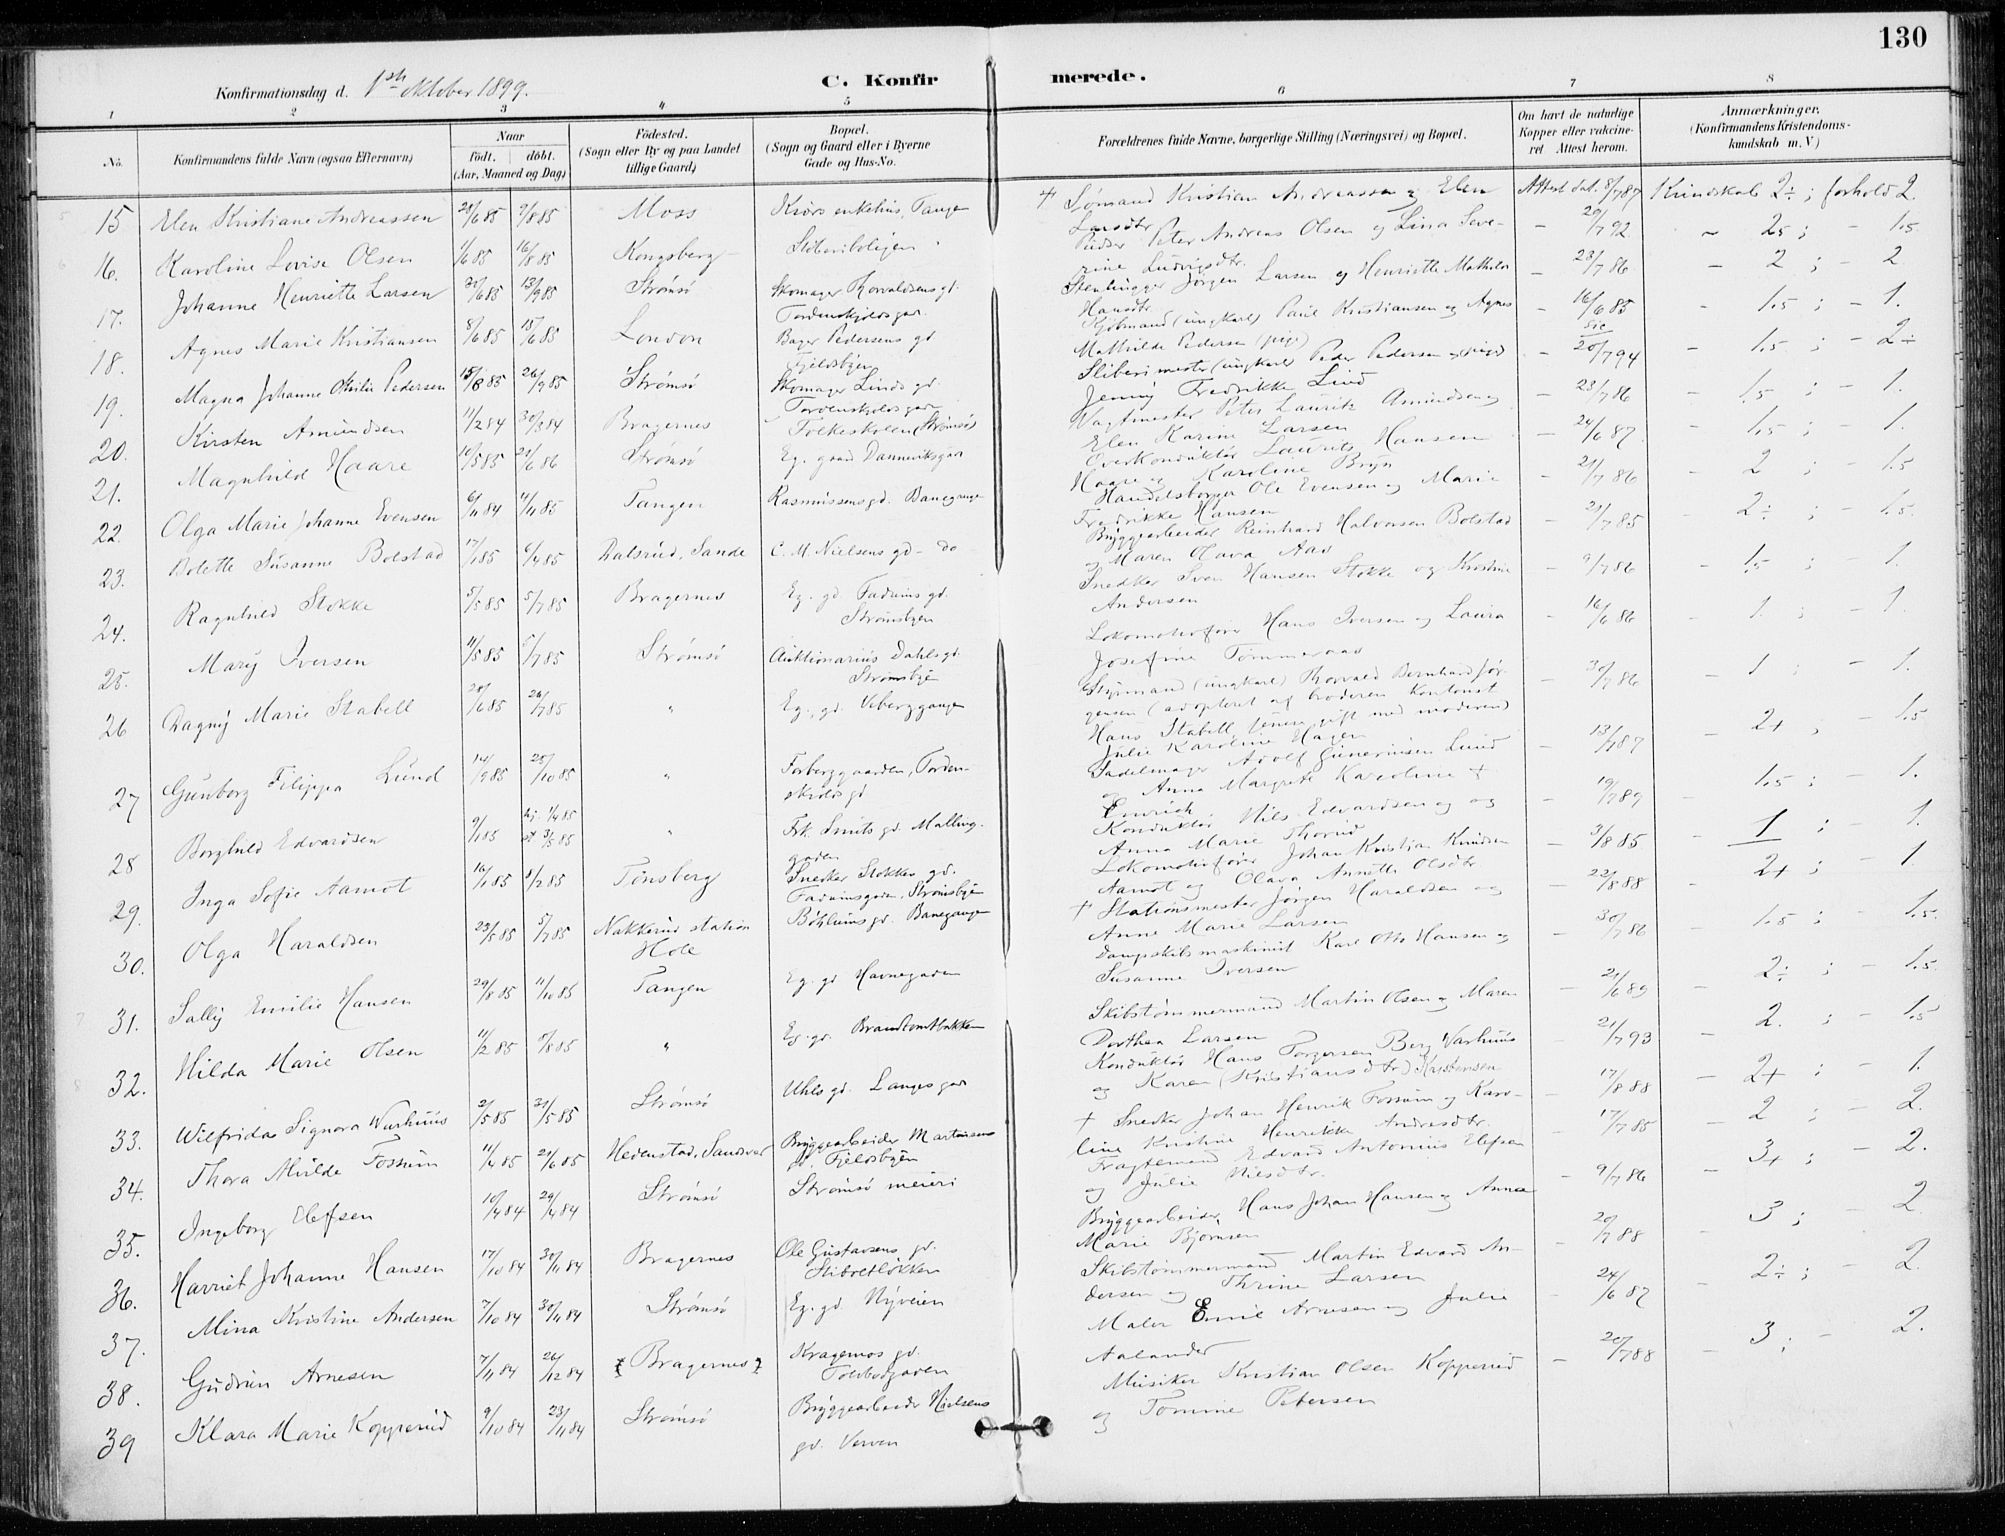 130
Konfirmationsdag d. 1ste Oktober 1899.
C. Konfirmerede.
1 2 3 4 5 6 7 8
No. Konfirmandens fulde Navn (ogsaa Efternavn) Naar født. døbt. (Aar, Maaned og Dag) Fødested. (Sogn eller By og paa Landet tillige Gaard) Bopæl. (Sogn og Gaard eller i Byerne Gade og Hus-No. Forældrenes fulde Navne, borgerlige Stilling (Næringsvei) og Bopæl. Om havt de naturlige Kopper eller vakcineret Attest herom. Anmærkninger. (Konfirmandens Kristendomskundskab m. V)
15 Elen Kristiane Andreassen 21/6 85 9/8 85 Moss enkehus, Tangen † Sømand Kristian Andreassen og Elen Attest dat. 8/7 87 Kundskab 2÷; forhold 2.
Larsdtr
16. Karoline Lovise Olsen 1/6 85 16/8 85 Kongsberg Sliberiboligen Peter Andreas Olsen og Lina Seve- - 29/7 92 ~ 25; - 1.5
rine Ludvigsdtr.
17. Johanne Henriette Larsen 30/6 85 13/9 85 Strømsø Skomager Rorvaldsens gd. Stenhugger Jørgen Larsen og Henriette Mathilde - 23/7 86 - 2; - 2
Tordenskjolds gad. Hansdtr
18. Agnes Marie Kristiansen 8/6 85 18/6 85 London Bager Pedersens gd Kjøbmand (ungkarl) Paul Kristiansen og Agnes - 16/6 85 sic - 1.5; - 1.
Fjeldsbyen Mathilde Pedersen (pige)
19. Magna Johanne Otilie Pedersen 18/8 85 26/9 85 Strømsø Skomager Linds gd. Sliberimester (ungkarl) Peder Pedersen og pige - 20/7 94 - 1.5; - 2÷
Tordenskjolds gade Jenny Fredrikke Lind
20. Kirsten Amundsen 11/2 84 30/3 84 Bragernes Folkeskolen (Strømsø) Vagtmester Peter Lauritz Amundsen og - 23/7 86 - 1.5; - 1.
Elen Karine Larsen
21. Magnhild Haare 10/5 85 21/6 86 Strømsø Eg. gaard Danneviksgad Overkonduktør Laurits Hansen - 24/6 87. - 1.5; - 1.
Haare og Karoline Bryn
22. Olga Marie Johanne Evensen 6/11 84 4/11 85 Tangen Rasmussens gd. Banegangen Handelsborger Ole Evensen og Marie - 21/7 86 - 2; - 1.5
Fredrikke Hansen
23. Bolette Susanne Bolstad 17/1 85 6/4 85 Dalsrud, Sande C. M. Nielsens gd - do - Bryggearbeider Reinhard Halvorsen Bolstad - 21/7 85 - 2÷; - 1.5.
og Maren Olava Aas
24. Ragnhild Stokke 5/5 85 5/7 85 Bragernes Eg. gd. Fadums gd. Snedker Sven Hansen Stokke og Kristine - 9/7 86 - 1.5; - 1.
Strømsbyen Andersen
25. Mary Iversen 11/5 85 5/7 85 Strømsø Auktionarius Dahls gd. Lokomotivfører Hans Iversen og Laura - 16/6 86 - 1; - 1.
Strømsbyen Josefine Tømmeraas
26 Dagny Marie Stabell 20/6 85 26/7 85 " Eg. gd. Vebergangen Styrmand (ungkarl) Rorvald Bernhard Jør- - 30/7 86 - 1; - 1.
gensen (adopteret af broderen Kontorist
Hans Stabell, senere gift med moderen)
Julie Karoline Hagen
27 Gunborg Filippa Lund 14/9 85 25/10 85 " Forberggaarden, Torden- Sadelmager Adolf Gunerius Lund - 13/7 87 - 2+; 1.5
skjolds gd og Anna Margrete Karoline †
Emrich
28 Borghild Edvardsen 9/1 85 hj. 1/4 85 st 3/5 85 " Frk. Smits gd. Malling- Konduktør Nils Edvardsen og - 19/7 89 - 1.5; - 1.
gaden Anna Marie Thorud
29. Inga Sofie Aamot 16/1 85 8/2 85 Tønsberg Snedker Stokkes gd. Lokomotivfører Johan Kristian Knudsen - 3/8 85 - 1; - 1.
Fadumsgaden, Strømsbyen Aamot og Olava Annette Olsdtr.
30. Olga Haraldsen 23/5 85 5/7 85 Nakkerud station Bøhlums gd. Banegangen † Stationsmester Jørgen Haraldsen og - 22/8 88 - 2+; - 1
Hole Anne Marie Larsen
31. Sally Emilie Hansen 29/8 85 11/10 85 Tangen Eg. gd Havnegaden Dampskibsmaskinist Karl Otto Hansen og - 30/7 86 - 1.5; - 1.5.
Susanne Iversen
32. Hilda Marie Olsen 11/2 85 9/8 85 " Eg. gd. Brandtomtbakken Skibstømmermand Martin Olsen og Maren - 21/6 89 - 2÷; - 1.5.
Dorthea Larsen
33. Wilfrida Signora Warhuus 2/5 85 31/5 85 Strømsø Uhls gd. Langes gad Konduktør Hans Torgersen Berg Warhuus - 21/7 93 - 2.; - 1.5
og Karen (Kristiansdtr.) Karstensen
34. Thora Milde Fossum 11/4 85 21/6 85 Hedenstad, Sandsver Bryggearbeider Martinsens † Snedker Johan Henrik Fossum og Karo- - 17/8 88 - 2+; - 1.
gd. Fjeldsbyen line Kristine Henrikke Andreasdtr.
35. Ingeborg Elefsen 10/4 84 29/4 84 Strømsø Strømsø meieri Fragtemand Edvard Antonius Elefsen - 17/7 85 - 2; - 2.
og Julie Nilsdtr.
36. Harriet Johanne Hansen 17/10 84 30/11 84 Bragernes Ole Gustavsens gd. Bryggearbeider Hans Johan Hansen og Anna - 9/7 86 - 3+; - 2.
Stiboltløkken Marie Bjørnsen
37. Mina Kristine Andersen 7/10 84 30/11 84 Strømsø Eg. gd. Nyveien Skibstømmermand Martin Edvard An- - 20/7 88 - 3; - 2
dersen og Thrine Larsen
38. Gudrun Arnesen 7/11 84 26/12 84 Bragernes Kragemos gd. Maler Emil Arnesen og Julie - 24/6 87 - 2÷; - 2.
Toldbodgaden Aalander
39 Klara Marie Kopperud 9/10 84 23/11 84 Strømsø Bryggearbeider Nielsens Musiker Kristian Olsen Kopperud - 20/7 88 - 3; - 2.
gd. Verven og Tomine Petersen